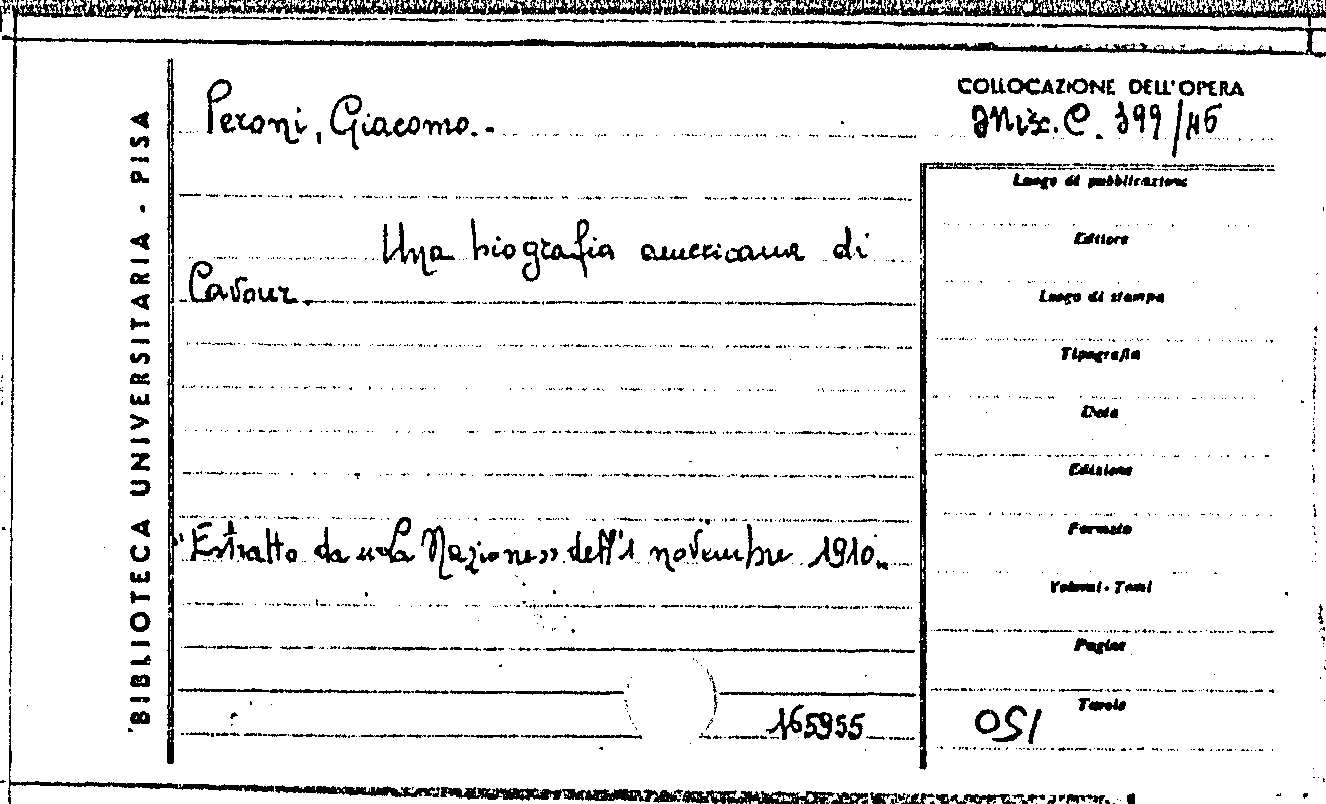 Peroni, Giacomo.-
COLLOCAZIONE DELL'OPERA
Misc. C. 399/46
Luogo di pubblicazione
Una biografia americana di
Cavour.
Editore
Luogo di stampa
Tipografia
Data
Edizione
Formato
"Estratto da «La Nazione» dell'1 novembre 1910."
Volumi - Tomi
Pagine
Tavole
165955
OSI
BIBLIOTECA UNIVERSITARIA - PISA